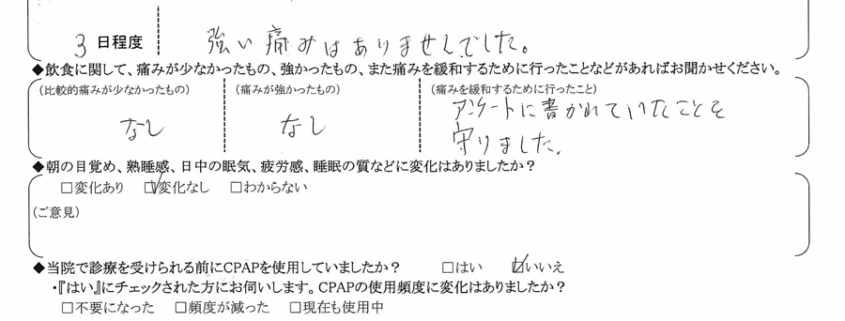 3 日程度 強い痛みはありませんでした。
◆飲食に関して、痛みが少なかったもの、強かったもの、また痛みを緩和するために行ったことなどがあればお聞かせください。
(比較的痛みが少なかったもの) (痛みが強かったもの) (痛みを緩和するために行ったこと)
なし なし アンケートに書かれていたことを
守りました。
◆朝の目覚め、熟睡感、日中の眠気、疲労感、睡眠の質などに変化はありましたか?
□変化あり ☑変化なし □わからない
(ご意見)
◆当院で診療を受けられる前にCPAPを使用していましたか? □はい ☑いいえ
・『はい』にチェックされた方にお伺いします。CPAPの使用頻度に変化はありましたか?
□不要になった □頻度が減った □現在も使用中